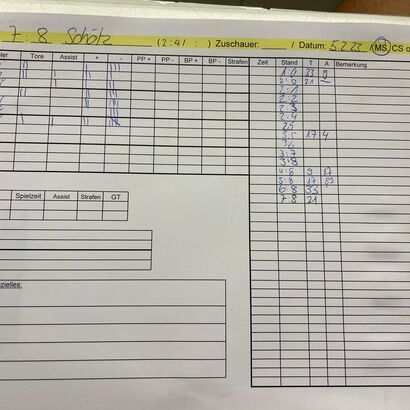 7:8 Schötz (2:4/ : ) Zuschauer: / Datum: 5.2.23 / MS CS o
Tore Assist + - PP + PP - BP + BP - Strafen
Zeit Stand T A Bemerkung
1:0 33 9
2:0 21
2:1
2:2
2:3
2:4
2:5
3:5 17 4
3:6
3:7
3:8
4:8 9 17
5:8 17
6:8 33
7:8 21
Spielzeit Assist Strafen GT
zielles: